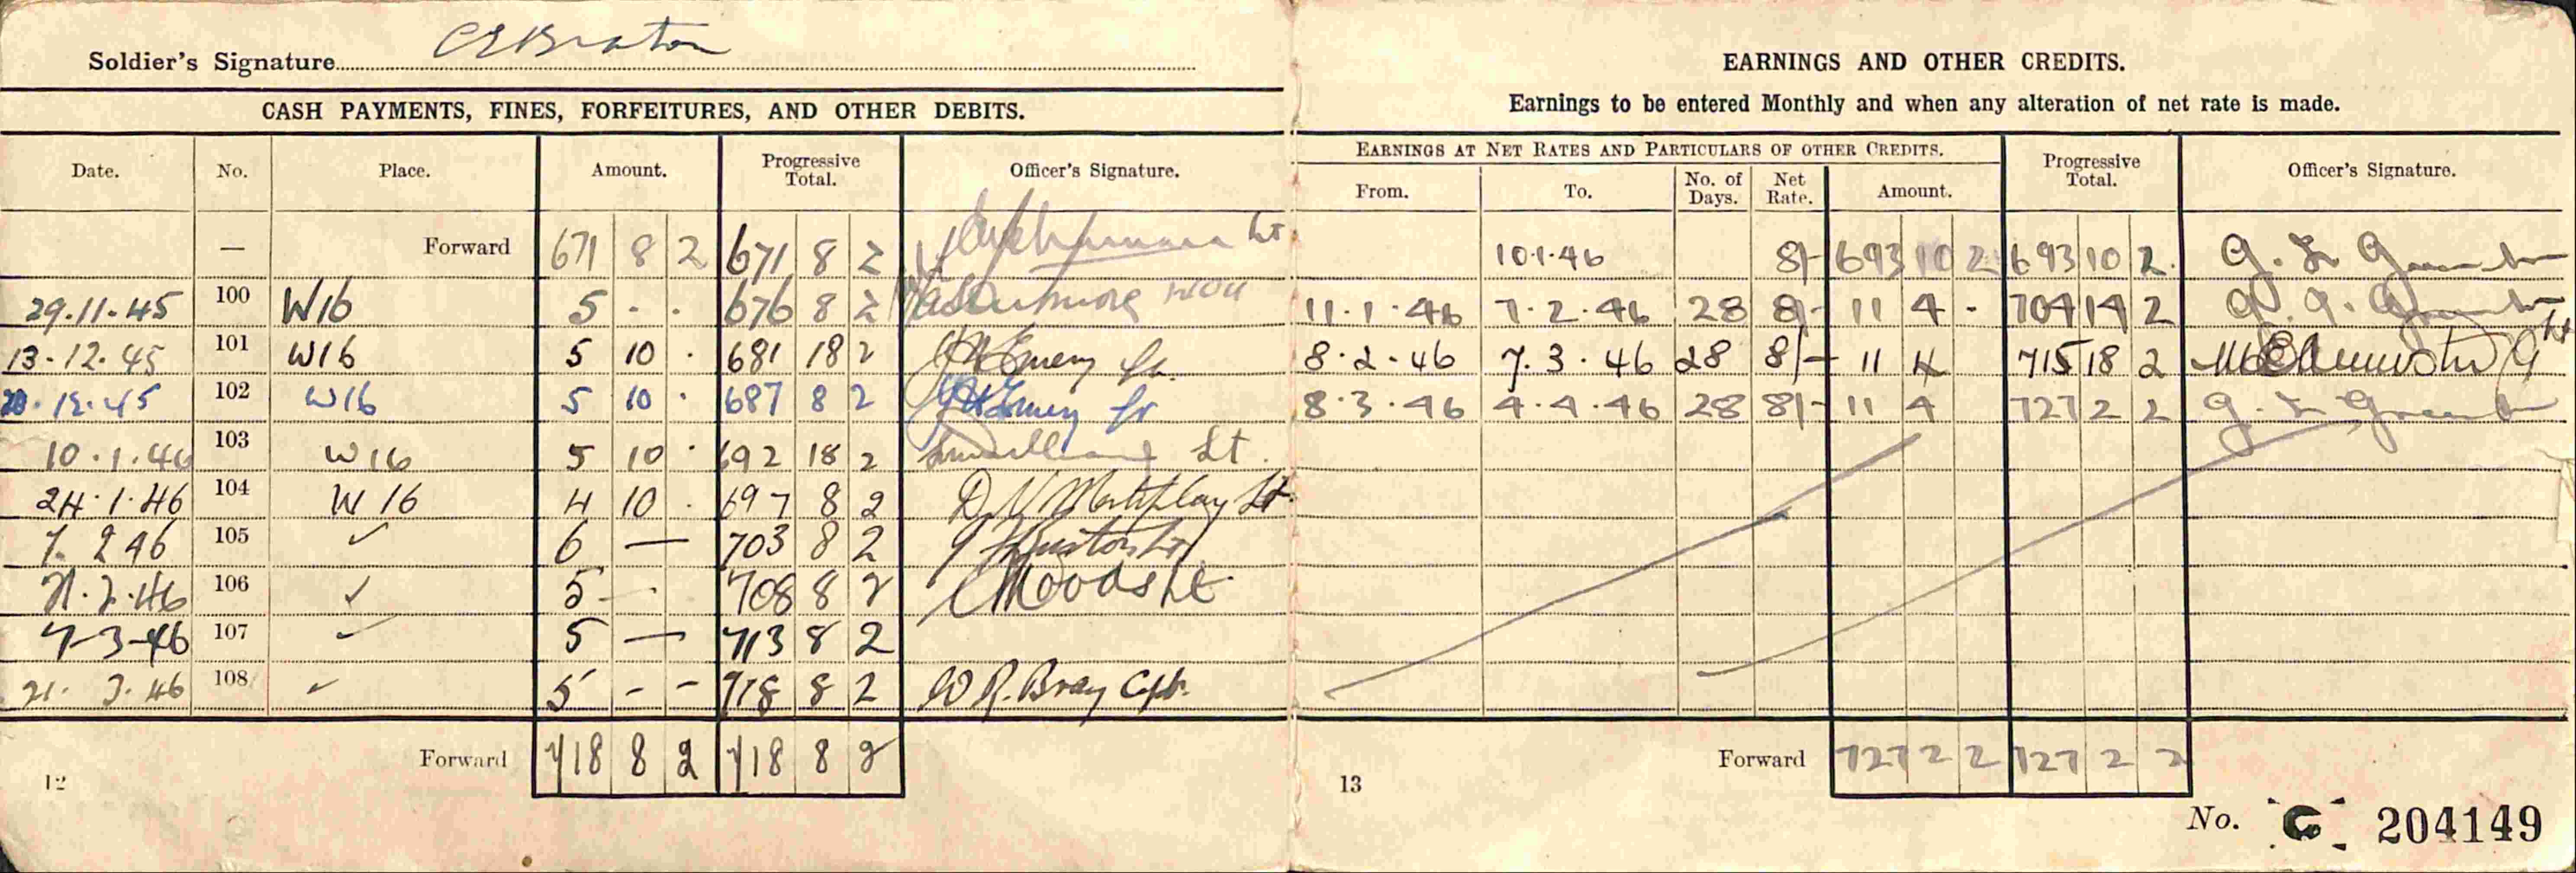 Soldier's Signature
CASH PAYMENTS, FINES, FORFEITURES, AND OTHER DEBITS.
Date. No. Place. Amount. Progressive Total. Officer's Signature.
— Forward 671 8 2 671 8 2 Lt.
29.11.45 100 W16 5 - . 676 8 2
13.12.45 101 W16 5 10 . 681 18 2
.12.45 102 W16 5 10 . 687 8 2
10.1.46 103 W16 5 10 . 692 18 2 Lt.
24.1.46 104 W16 4 10 . 697 8 2 Lt.
7. 2 46 105 ✓ 6 — 703 8 2
21.2.46 106 ✓ 5 — 708 8 2
7-3-46 107 ✓ 5 — 713 8 2
21. 3.46 108 ✓ 5 - - 718 8 2 W R. Bray Capt.
Forward 718 8 2 718 8 2
12
EARNINGS AND OTHER CREDITS.
Earnings to be entered Monthly and when any alteration of net rate is made.
EARNINGS AT NET RATES AND PARTICULARS OF OTHER CREDITS. Progressive Total. Officer's Signature.
From. To. No. of Days. Net Rate. Amount.
10.1.46 8/- 693 10 2 693 10 2
11.1.46 7.2.46 28 8/- 11 4 - 704 14 2
8.2.46 7.3.46 28 8/- 11 4 715 18 2
8.3.46 4.4.46 28 8/- 11 4 727 2 2
Forward 727 2 2 727 2 2
13
No. C 204149